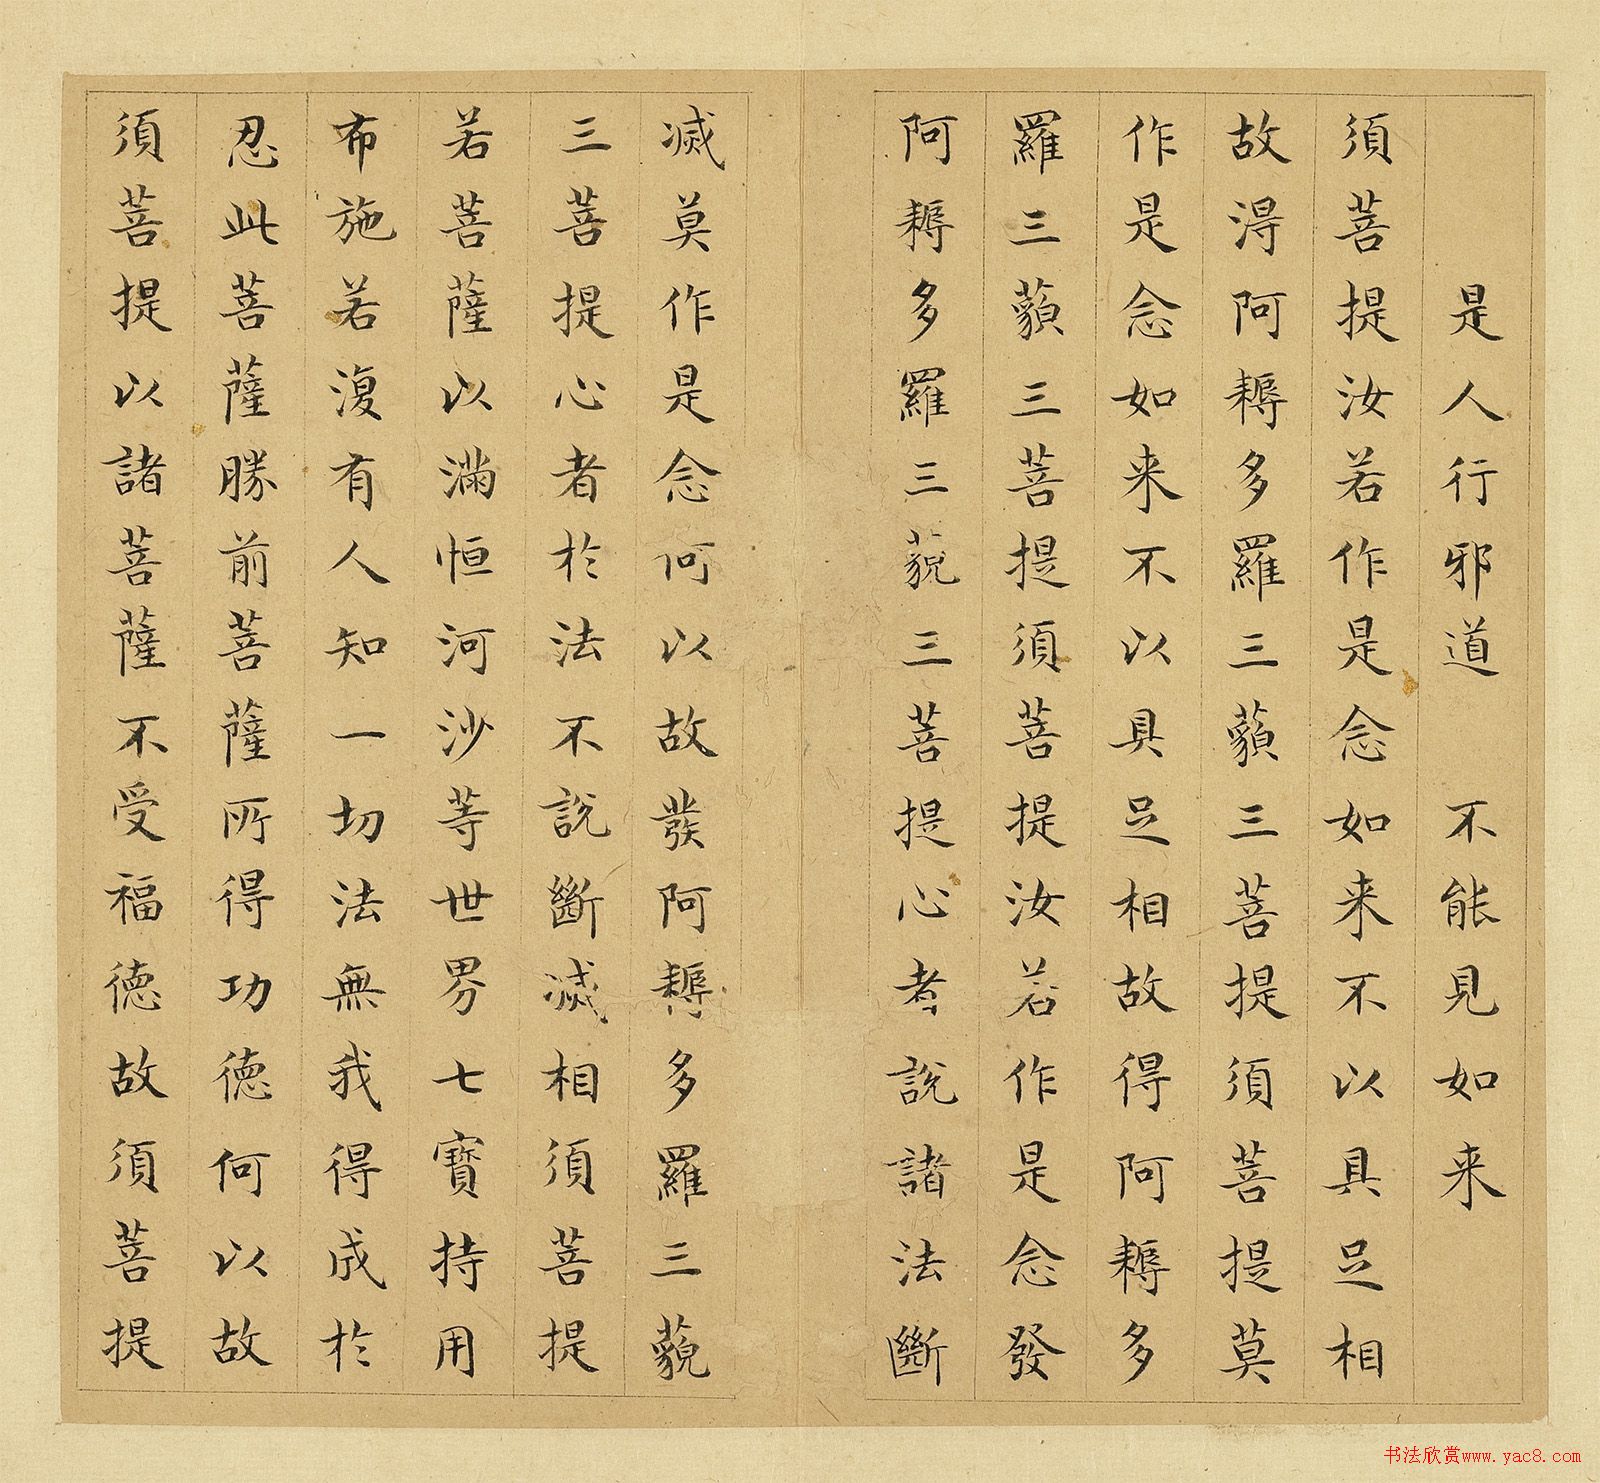 是人行邪道　不能見如来
須菩提汝若作是念如来不以具足相
故得阿耨多羅三藐三菩提須菩提莫
作是念如来不以具足相故得阿耨多
羅三藐三菩提須菩提汝若作是念發
阿耨多羅三藐三菩提心者說諸法斷
滅莫作是念何以故發阿耨多羅三藐
三菩提心者於法不說斷滅相須菩提
若菩薩以滿恒河沙等世界七寶持用
布施若復有人知一切法無我得成於
忍此菩薩勝前菩薩所得功德何以故
須菩提以諸菩薩不受福德故須菩提
书法欣赏www.yac8.com